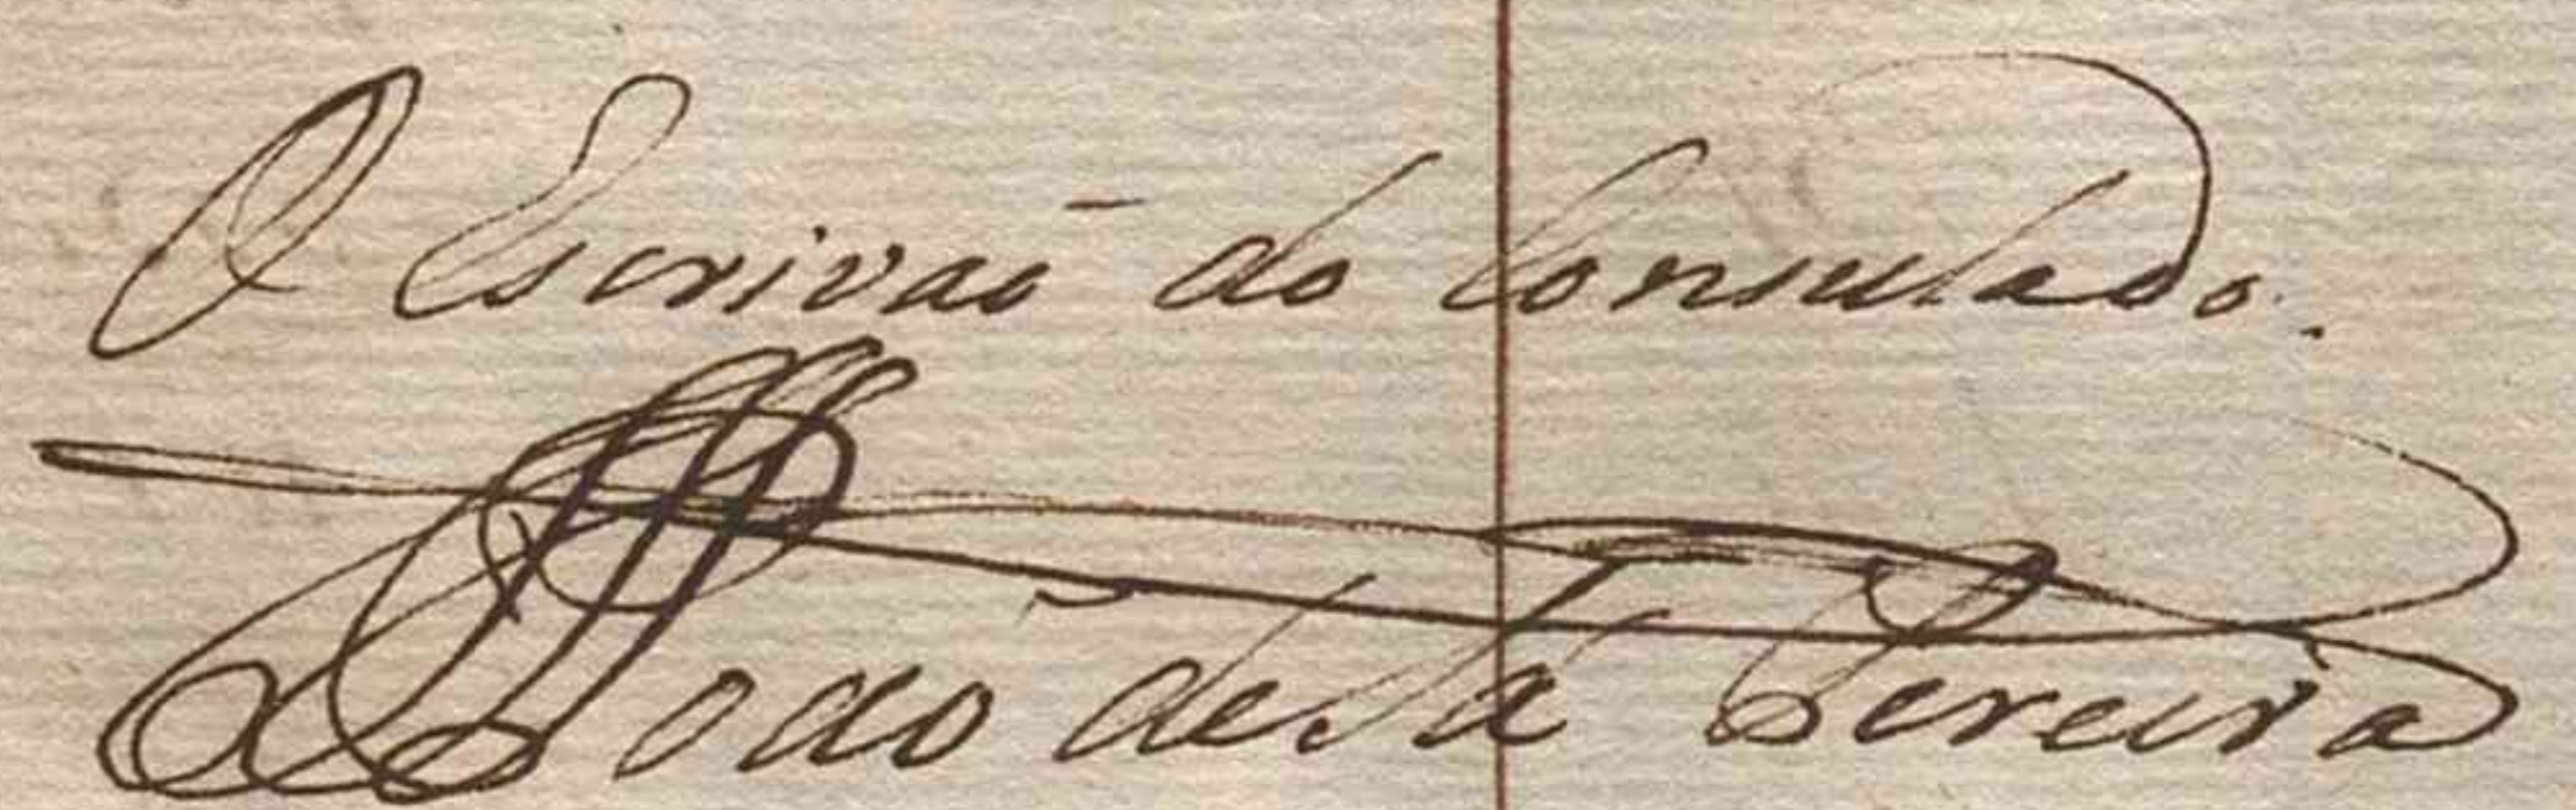 O Escrivaõ do Consulado.
João de Sá Pereira